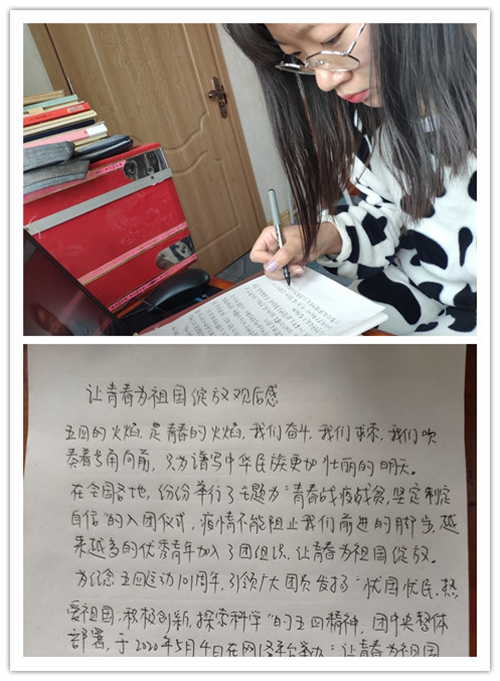 让青春为祖国绽放观后感
五四的火焰,是青春的火焰,我们奋斗,我们求索,我们吹
奏着号角向前,只为谱写中华民族更加壮丽的明天。
在全国各地,纷纷举行了主题为“青春战疫战贫,坚定制度
自信”的入团仪式,疫情不能阻止我们前进的脚步,越
来越多的优秀青年加入了团组织,让青春为祖国绽放。
为纪念五四运动101周年,引领广大团员发扬“忧国忧民、热
爱祖国、积极创新、探索科学”的五四精神,团中央整体
部署,于2020年5月4日在网络平台举办“让青春为祖国